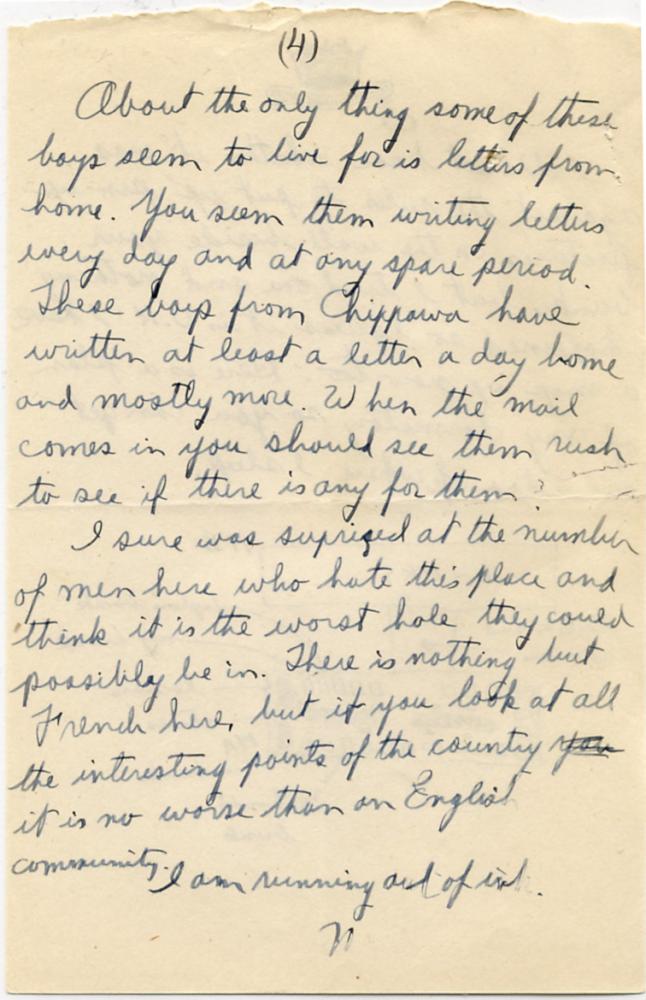 (4)
About the only thing some of these
boys seem to live for is letters from
home. You seem them writing letters
every day and at any spare period.
These boys from Chippawa have
written at least a letter a day home
and mostly more. When the mail
comes in you should see them rush
to see if there is any for them?
I sure was suprised at the number
of men here who hate this place and
think it is the worst hole they could
possibly be in. There is nothing but
French here, but if you look at all
the interesting points of the country you
it is no worse than an English
community. I am running out of ink.